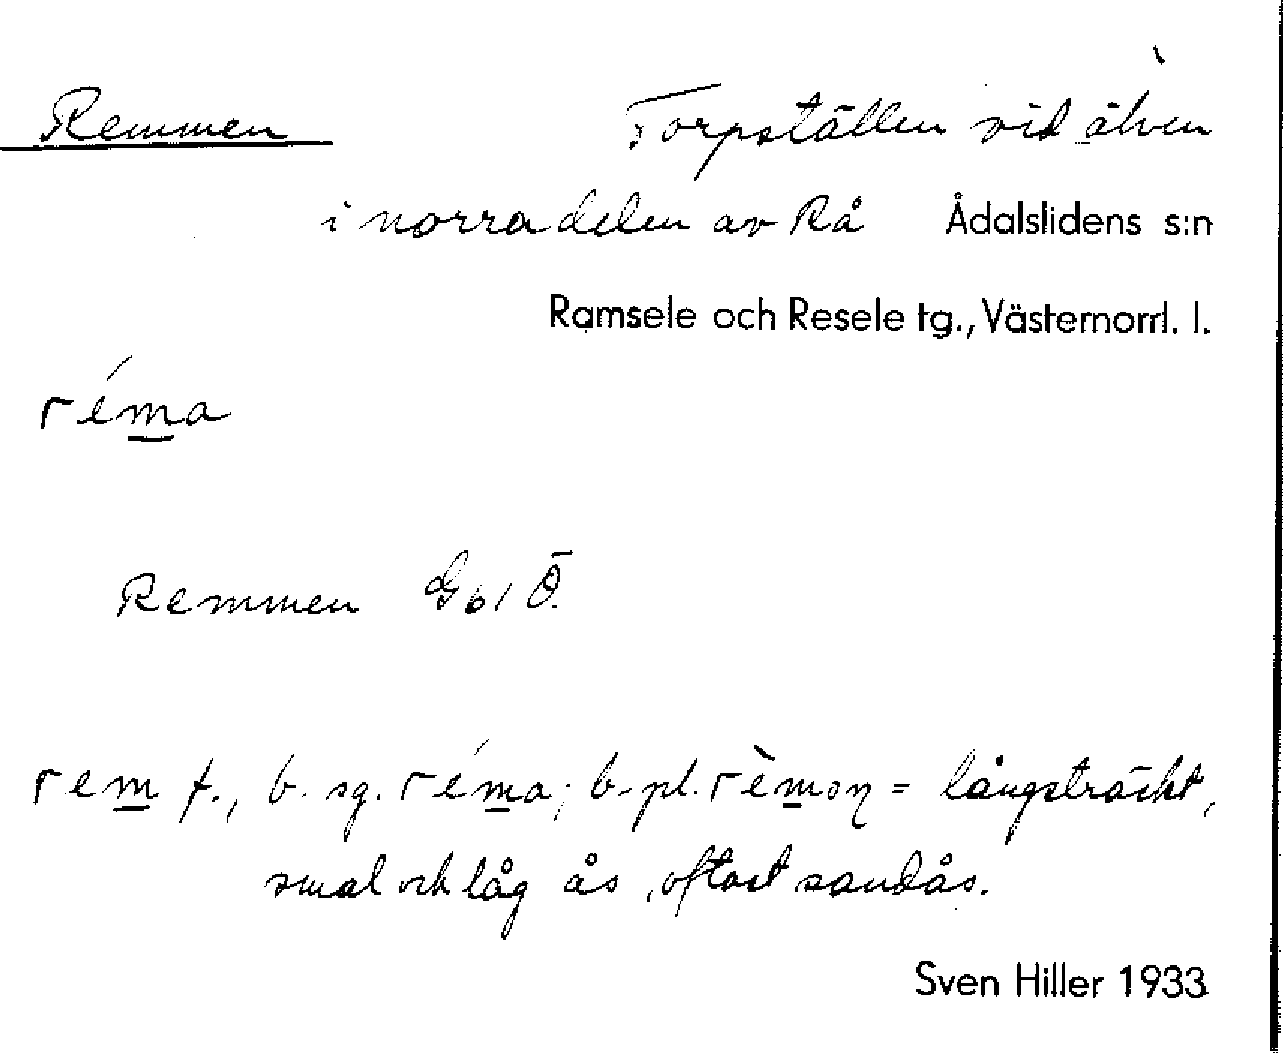 Remmen Torpställen vid älven
i norra delen av Rå Ådalslidens s:n
Ramsele och Resele tg., Västernorrl. l.
réma
Remmen Gbl Ö.
rem f., b. sg. réma; b. pl. rèmoņ = långsträckt,
smal och låg ås, oftast sandås.
Sven Hiller 1933